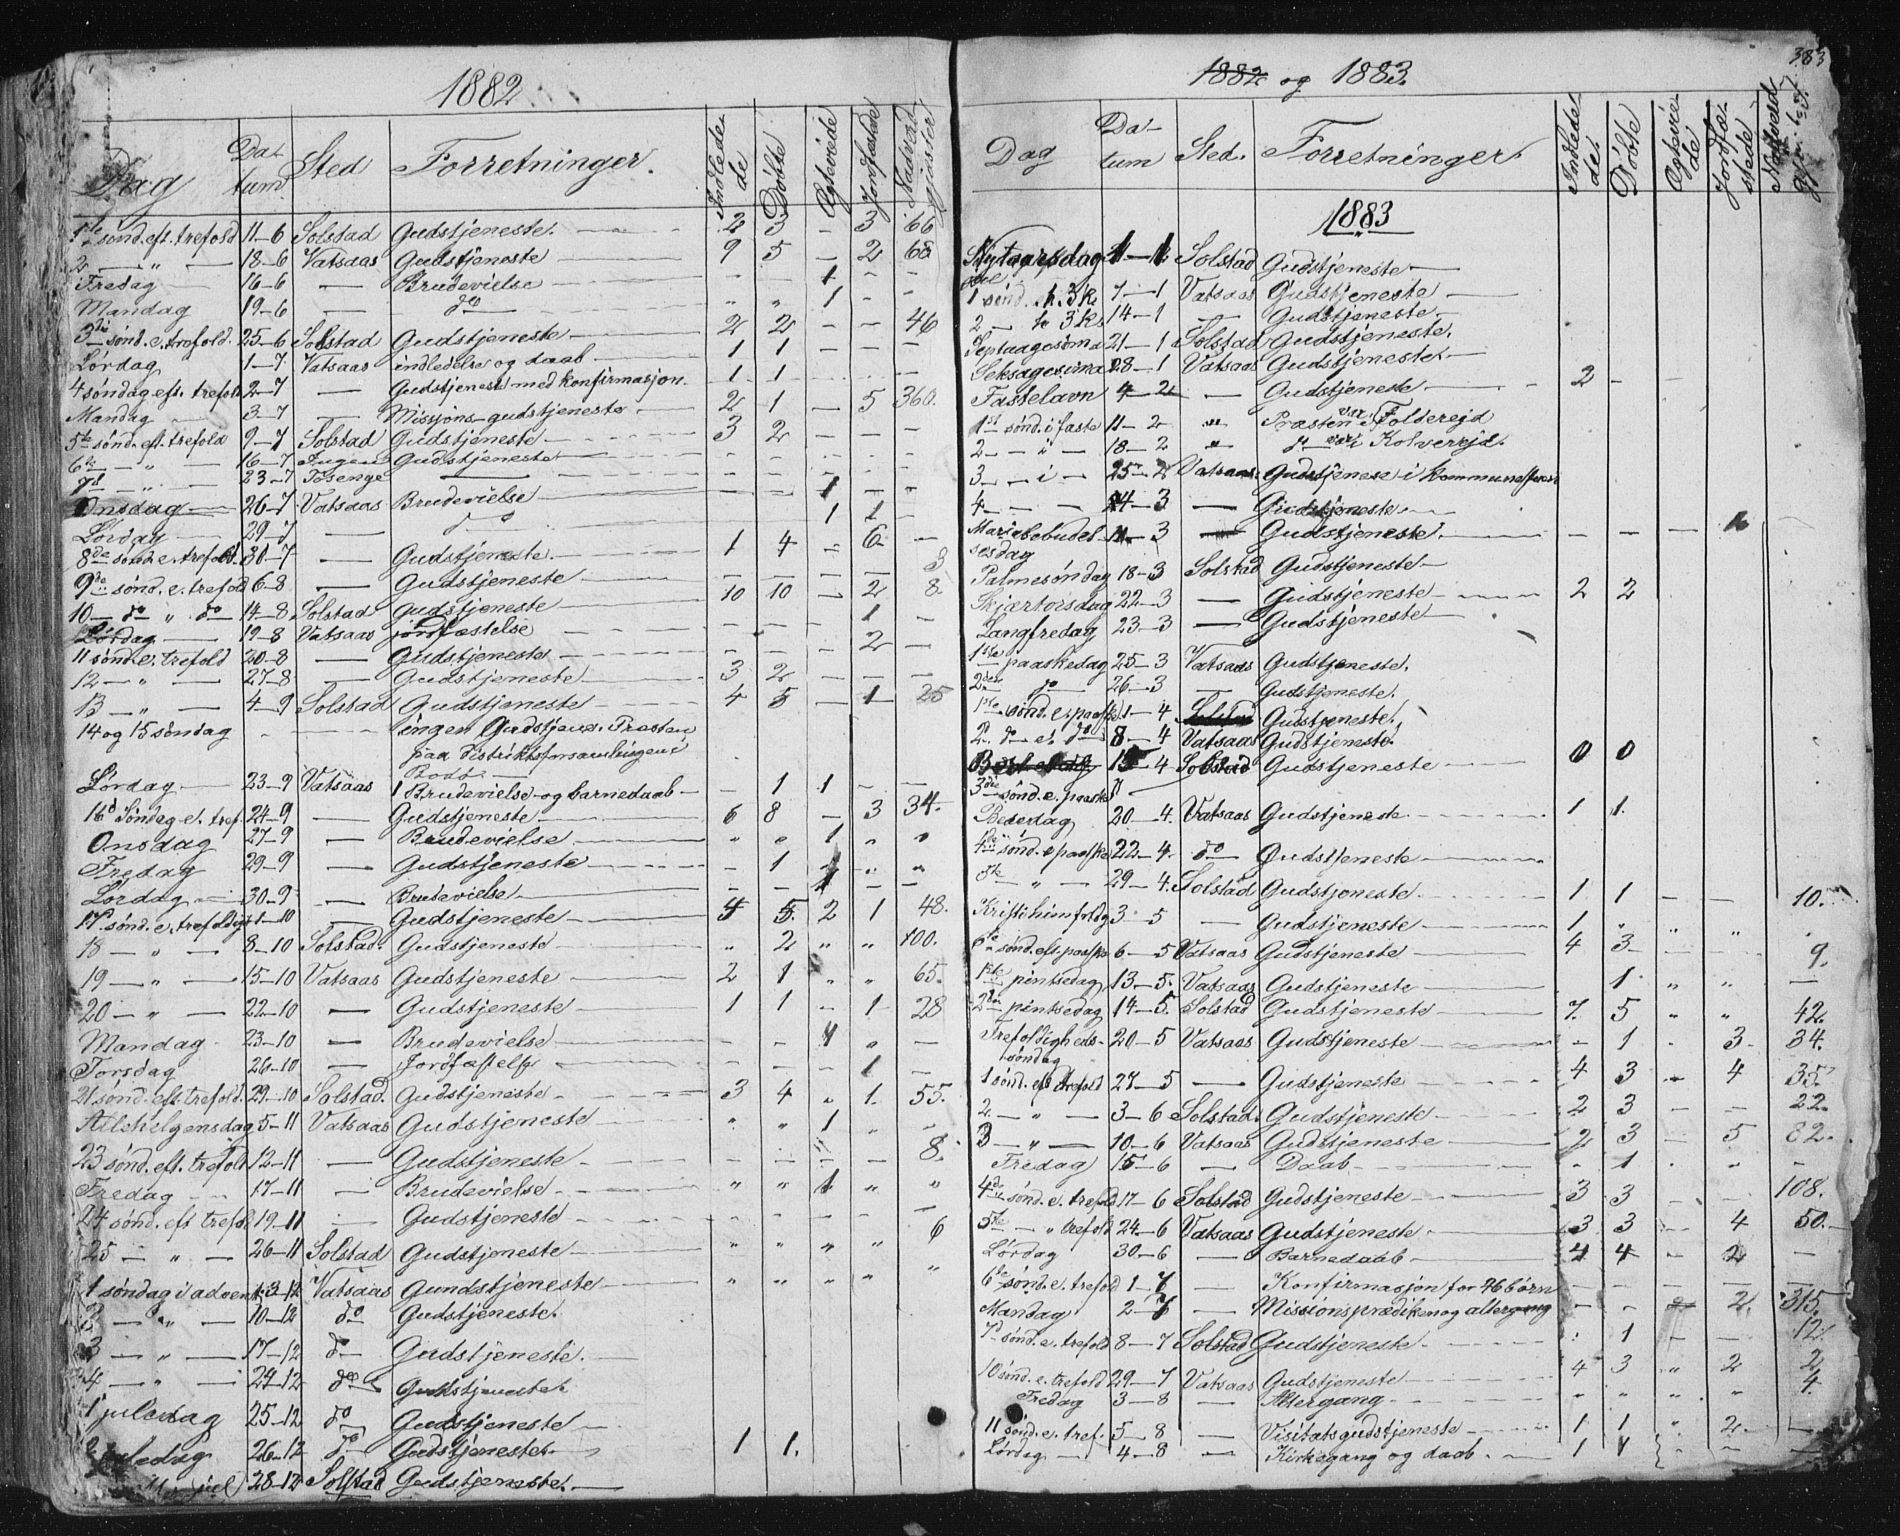 1882
Dag Datum Sted Forretninger. Indledede Döbte Ægteviede Jordfæstede Nadverdgjæster
1ste sönd. eft. trefold 11–6 Solstad Gudstjeneste. 2 3 – 3 66
2 — " — 18–6 Vatsaas Gudstjeneste 9 5 – 2 68
Fredag — 16–6 — Brudevielse – – 1 – –
Mandag 19–6 — do " " 1 – –
3die sönd. e. trefold. 25–6 Solstad Gudstjeneste 2 2 – – 46
Lördag 1–7 Vatsaas indledelse og daab 1 1 – – –
4 söndag eft. trefold 2–7 — Gudstjenest med konfirmasjon. 1 1 – – –
Mandag 3–7 — Missjons-gudstjeneste 2 1 – 5 360.
5te sönd. eft. trefold 9–7 Solstad Gudstjeneste 3 2 – – –
6te — " — 16–7 Gudstjeneste – – – – –
23–7 Tosenge — – – – – –
Onsdag — 26–7 Vatsaas Brudevielse – – 1 – –
Lördag — 29–7 — do 1 1 –
8de sönd. e. trefold. 30–7 — Gudstjeneste. 1 4 – 6 –
9de sönd. e. trefold 6–8 — Gudstjeneste – – – – 3
10 – do " do 14–8 Solstad Gudstjeneste 10 10 – 2 8
Lördag — 19–8 Vatsaas jordfæstelse – – – 1 –
11 sönd. e. trefold 20–8 — Gudstjeneste – – – 2 –
12 — " — 27–8 — Gudstjeneste 3 2 – – –
13 — " — 4–9 Solstad Gudstjeneste 4 5 – 1 25
14 og 15 söndag ingen Gudstjens. Præsten
paa distriktsforsamlingen i
Bodö. —
Lördag — 23–9 Vatsaas 1 Brudevielse og barnedaab – 1 1 – –
16d Söndag e. tref. 24–9 — Gudstjeneste 6 8 – 3 34.
Onsdag 27–9 — Brudevielse " " 1 " "
Fredag 29–9 — Gudstjeneste – 1 " "
Lördag — 30–9 — Brudevielse – – 1 – –
17 sönd. e. trefoldigh 1–10 — Gudstjeneste 4 5 2 1 48.
18 — " — 8–10 Solstad. Gudstjeneste " 2 " " 100.
19 — " — 15–10 Vatsaas Gudstjeneste 2 1 " " 65.
20 — " — 22–10 — Gudstjeneste 1 1 – 1 28
Mandag 23–10 — Brudevielse – – 1 " –
Torsdag 26–10 — Jordfæstelse – – – 1 –
21 sönd. eft. trefold. 29–10 Solstad. Gudstjeneste 3 4 " 1. 55.
Allehelgensdag 5–11 Vatsaas Gudstjeneste " " 1 " "
23 sönd. eft. trefold 12–11 — Gudstjeneste – – – – 8.
Fredag — 17–11 — Brudevielse " " 1 " "
24 sönd. eft trefol 19–11 — Gudstjeneste – – – – –
25 — " — 26–11 Solstad Gudstjeneste " " " " 6
1 söndag i advent 3–12 Vatsaas Gundstjeneste " " " " "
2 — " — 10–12 do Gudstjeneste.
3 — " — 17–12 do Gudstjeneste.
4 — " — 24–12 do Gudstjeneste.
1 juledag 25–12 do Gudstjeneste
2 juledag 26–12 do Gudstjeneste 1 1.
jul 28–12 Solstad Gudstjeneste.
383
1882 og 1883.
Dag Datum Sted. Forretninger. Indledede Döbte Ægteviede Jordfæstede Nadverdgjæster
1883
Nytaarsdag 1–1 Solstad Gudstjeneste
1 sönd. h. 3 k. 7–1 Vatsaas Gudstjeneste
2 — h 3 k. 14–1 — Gudstjeneste
Septuagesima 21–1 Solstad Gudstjeneste.
Seksagesima 28–1 Vatsaas Gudstjeneste.
Fastelavn 4–2 — Gudstjeneste 2 – –
1st sönd. i faste 11–2 " Præsten var i Folderejd
2 — i — 18–2 " do var i Kolverejd.
3 — i — 25–2 Vatsaas Gudstjenese i
4 — – — 4–3 — Gudstjeneste
Mariæbebudelsesdag 11–3 — Gudstjeneste. – – – 1
Palmesöndag 18–3 Solstad Gudstjeneste
Skjærtorsdag 22–3 — Gudstjeneste 2 2
Langfredag 23–3 — Gudstjeneste
1ste paaskedag 25–3 Vatsaas Gudstjeneste.
2den do 26–3 — Gudstjeneste.
1ste sönd. e. paaske 1–4 Solstad Gudstjeneste.
2. do e. do 8–4 Vatsaas Gudstjeneste.
15–4 Solstad Gudstjeneste 0 0
3die sönd. e. paaske
Bededag 20–4. Vatsaas Gudstjeneste 1 1.
4de sönd. e. paaske 22–4. do Gudstjeneste
5te " — 29–4. Solstad Gudstjeneste 1 1 – – 10.
Kristi himfeldag 3–5 — Gudstjeneste 1 " " " "
6te sönd. eft. paaske 6–5 Vatsaas Gudstjeneste 4 3 – – 9.
1ste pintsedag 13–5. Vatsaas Gudstjeneste 1 " " —
2den pintsedag 14–5. Solstad Gudstjeneste 7. 5 " " 42.
Trefoldigheds- 20–5 Vatsaas Gudstjeneste – 1 – 3 34.
söndag
1 sönd. eft trefold 27–5 — Gudstjeneste 4 3 – 4 35
2 — " — 3–6 Solstad. Gudstjeneste 2 3 – – 22.
3 — " — 10–6 Vatsaas Gudstjeneste 2 3 – 5 82.
Fredag 15–6 — Daab – 1 – – –
4de sönd. e. trefold 17–6 Solstad Gudstjeneste 3 3 – – 108.
5te — " trefold 24–6 Vatsaas Gudstjeneste 3 3 – 4 50.
Lördag 30–6 — Barnedaab 4 4 – 2 –
6te sönd. e. trefold 1–7 — Konfirmasjon for 46 börn – – – – –
Mandag 2–7 — Missionsprædiken og altergang – – 2. 315.
7de sönd. e. trefold 8–7 Solstad Gudstjeneste " 1 – – 12.
10 sönd. e. trefold 29–7 Vatsaas Gudstjeneste 4 3 " 2 2
Fredag 3–8 — Altergang " " " " 4.
11 sönd. e. tref. 5–8 — Visitatsgudstjeneste 1 1 " 2. –
Lördag — 4–8 — Kirkegang og daab. 1 1 – – –